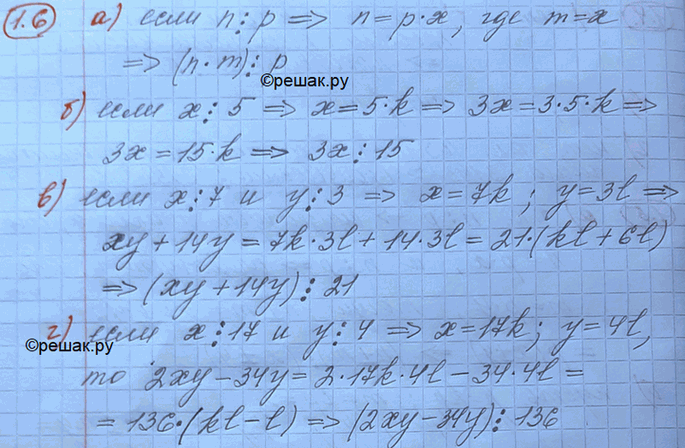 1.6 а) если n⋮p => n=p·x, где m=x
=> (n·m)⋮p
©решак.ру
б) если x⋮5 => x=5·k => 3x=3·5·k =>
3x=15·k => 3x⋮15
в) если x⋮7 и y⋮3 => x=7k; y=3l =>
xy+14y=7k·3l+14·3l=21·(kl+6l)
=> (xy+14y)⋮21
г) если x⋮17 и y⋮4 => x=17k; y=4l,
©решак.ру
то 2xy-34y=2·17k·4l-34·4l=
=136·(kl-l) => (2xy-34y)⋮136